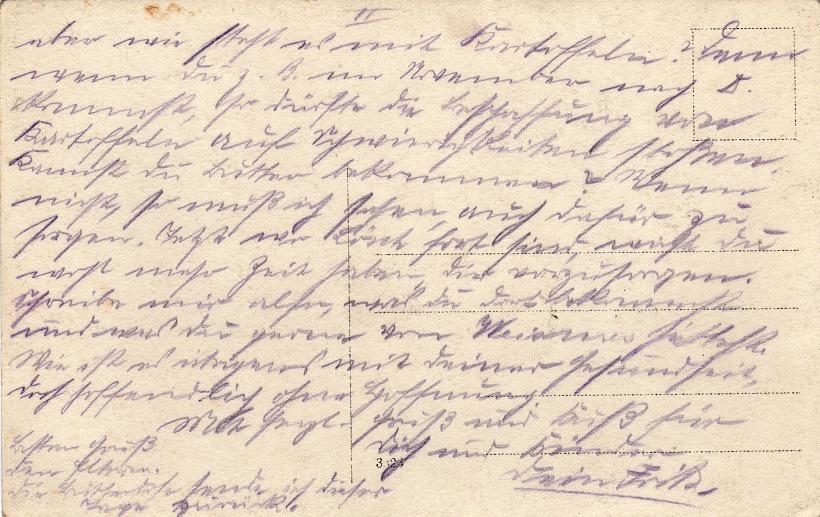 II
aber wie steht es mit Kartoffeln? Denn
wenn du z. B. im November nach D.
kommst, so dürfte die Beschaffung von
Kartoffeln auf Schwierigkeiten stoßen.
Kannst du Butter bekommen? Wenn
nicht, so muß ich sehen, auch dafür zu
sorgen. Jetzt wo fort sind, wirst du
wohl mehr Zeit haben, dir vorzusorgen.
Schreibe mir also, was du dort bekommst
und was du gerne von hättest.
Wie ist es übrigens mit deiner Gesundheit,
doch hoffendlich ohne Hoffnung
Mit herzl. Gruß und Kuß für
Dich und Kinder
Dein Fritz.
Besten Gruß
den Eltern.
Die sende ich dieser
Tage zurück.